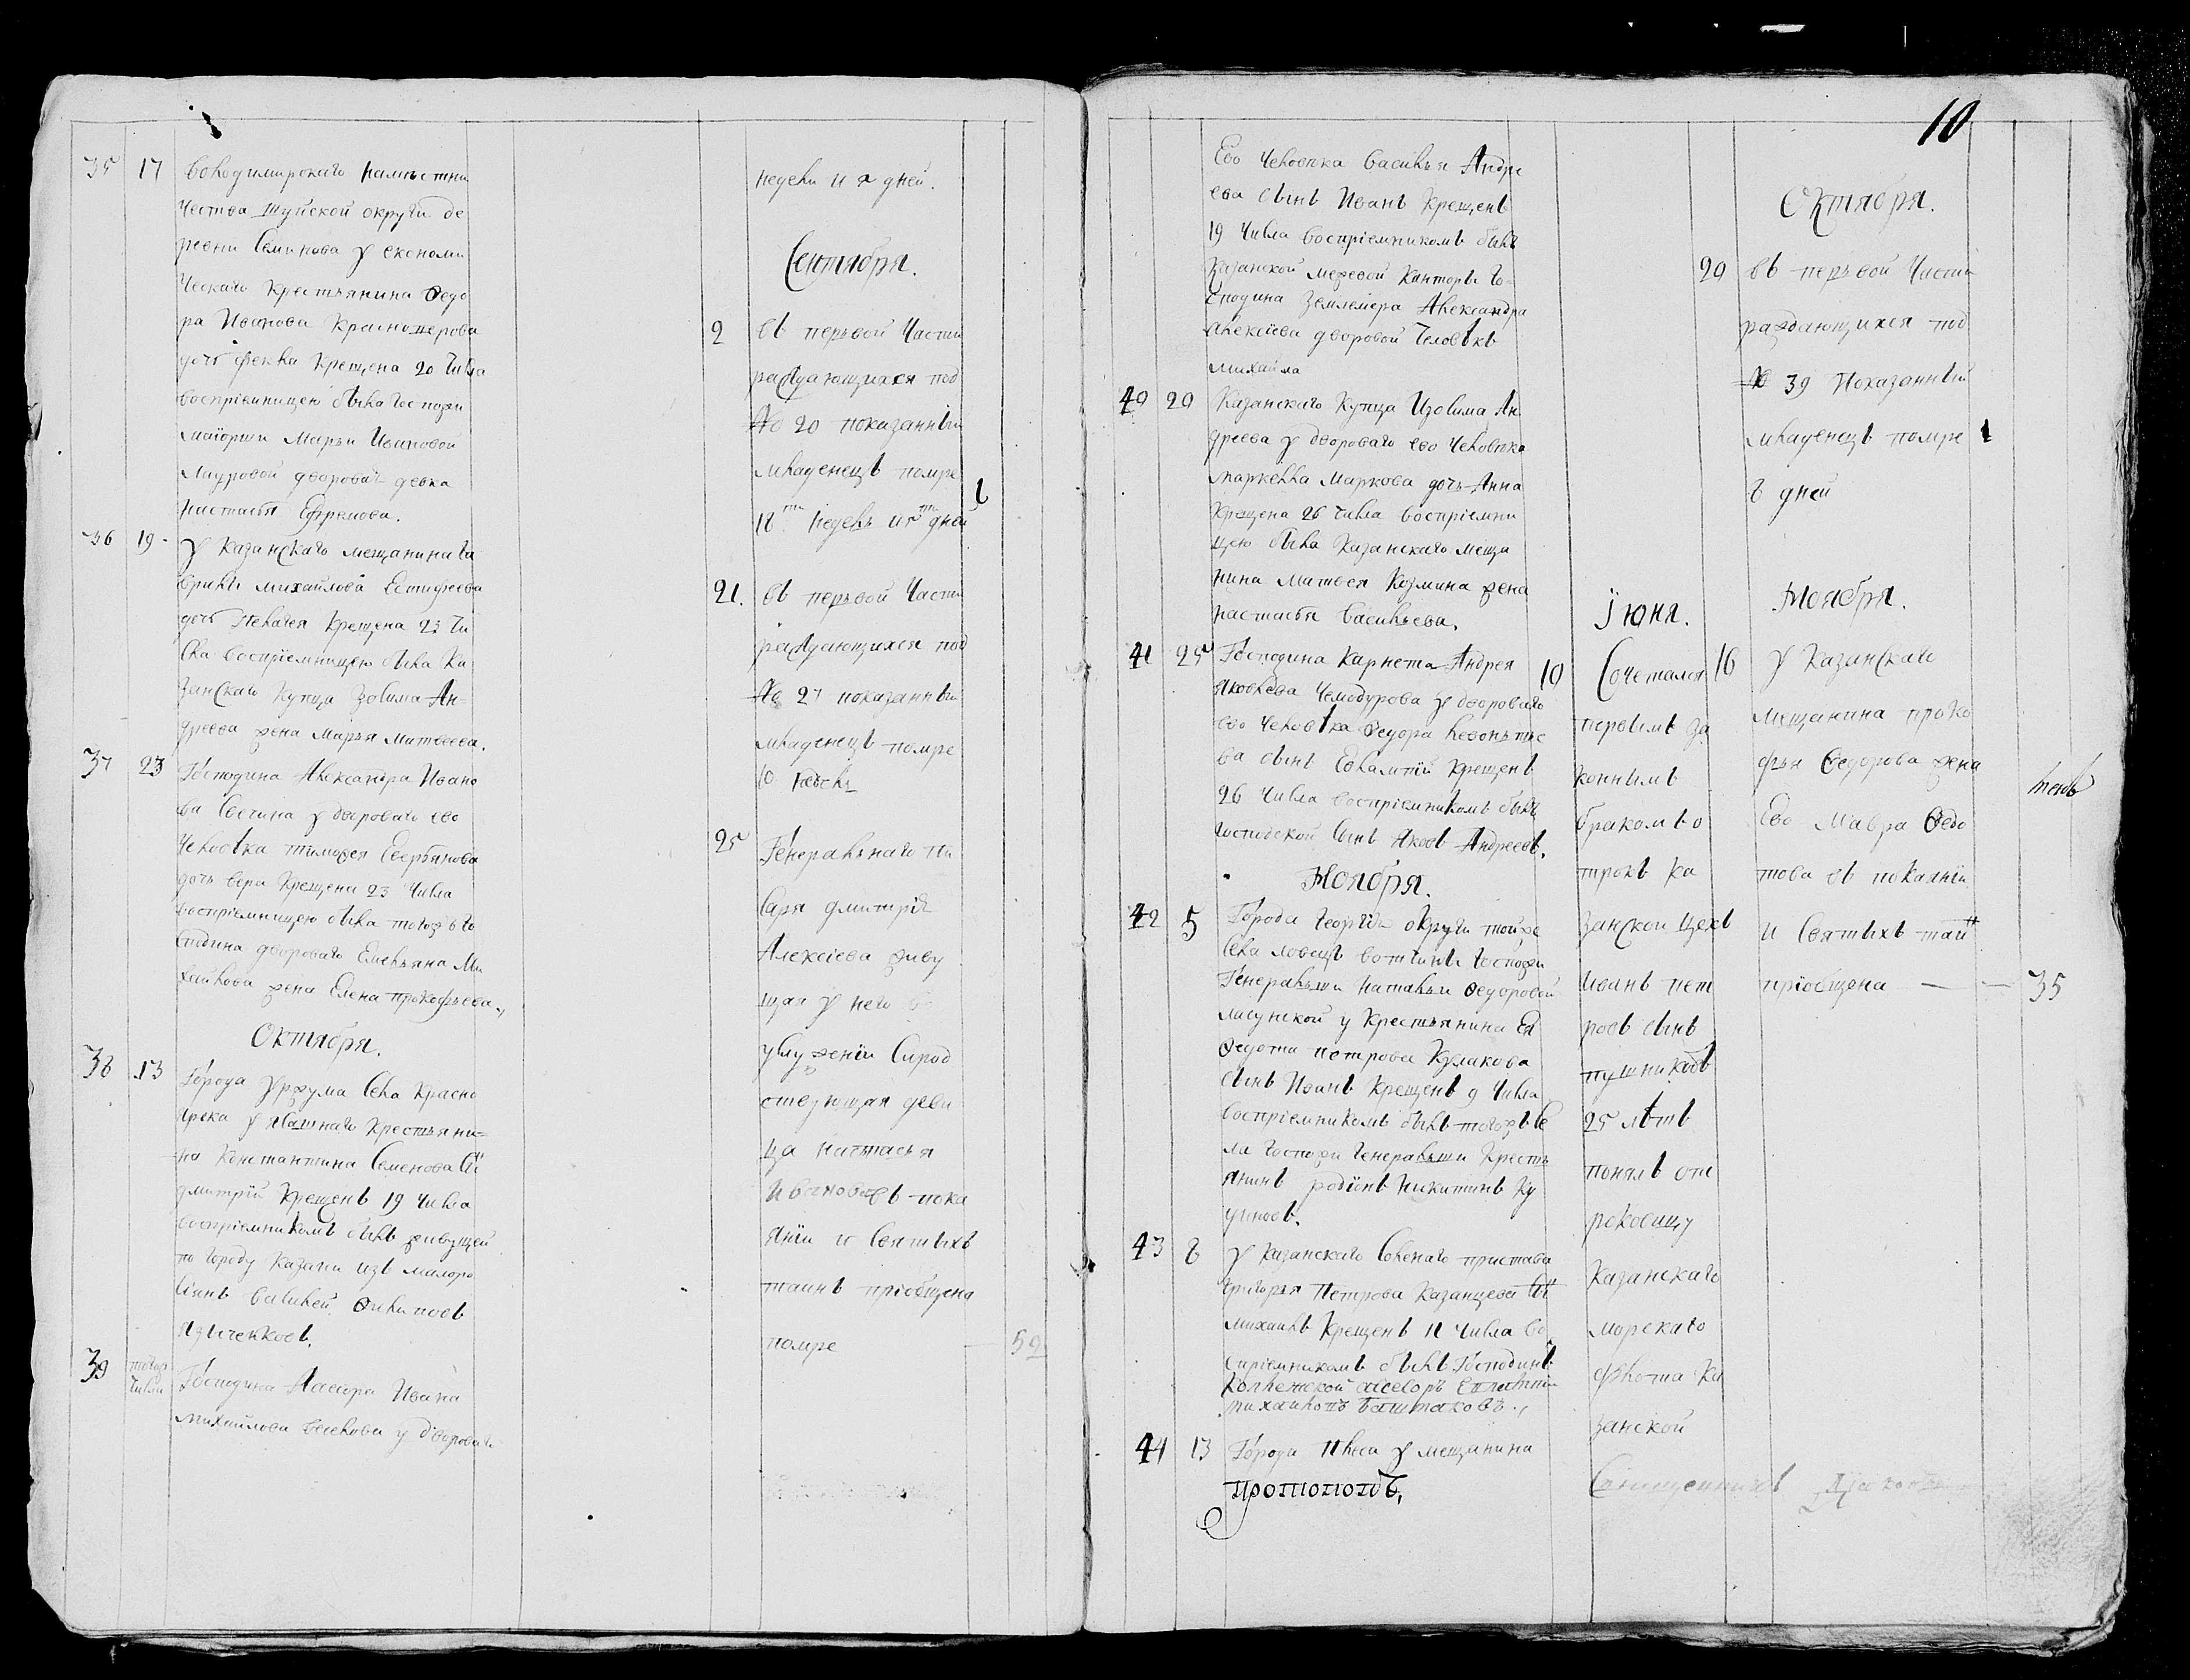 35 17 Володимирскаго намѣстни
чества шуйской округи де
ревни Семинова у економи
ческаго крестьянина Ѳедо
ра Иванова Красноперова
дочь Фекла крещена 20 числа
воспріемницею была госпожи
маіорши Марьи Ивановой
дворовая девка
Настасья Ефремова.
36 19 у Казанскаго мещанина Га
врилы Михайлова Естифеева
дочь Пелагея крещена 23 чи
сла воспріемницею была Ка
занскаго купца Зосима Ан-
дреева жена Марья Матвеева.
37 23 Господина Александра Ивано
ва Свечина у двороваго ево
человѣка Тимофея
дочь Вера крещена 23 числа
воспріемницею была тогожъ го
сподина двороваго Емельяна Ми
хайлова жена Елена Прокофьева.
Октября.
38 13 Города Уржума Села Красно
у Ясашнаго крестьяни-
на Константина Семенова сы
Дмитрій крещенъ 19 числа
воспріемникомъ былъ живущей
по городу Казани изъ малоро
сіянъ Василей Филиповъ
39 тогож числа Господина Маіора Ивана
Михайлова у двороваго
недели и 2 дней.
Сентября.
2 въ первой части
раждающихся под
№ 20 показанный
младенецъ помре
18ти недель и 5ти дней
1
21. въ первой части
раждающихся под
№ 27 показанный
младенецъ помре
10 недель
25 Генеральнаго пи
саря Дмитрія
Алексіева живу
щая у него в
услуженіи Сирод
ствующая деви
ца Настасья
Иванова въ пока
яніи и Святыхъ
таинъ пріобщена
помре — 52
10
Ево человѣка Василья Андре
ева сынъ Иванъ крещенъ
19 числа воспріемникомъ былъ
Казанской межевой канторы го-
сподина Землемера Александра
Алексіева дворовой человѣкъ
Михайла
40 20 Казанскаго купца Изосима Ан
дреева у двороваго ево человѣка
Маркелла Маркова дочь Анна
крещена 26 числа воспріемни
цею была Казанскаго меща
нина Матвея Козмина жена
Настасья Васильева.
41 25 Господина Карнета Андрея
Яковлева Чемодурова у двороваго
ево человѣка Ѳедора Левонтье
ва сынъ Евлампій крещенъ
26 числа воспріемникомъ былъ
господской сынъ Яковъ Андреевъ.
Ноября.
42 5 Города Георгія округи той же
села Ловецъ вотчины госпожи
Генеральши Натальи Ѳедоровой
у крестьянина Ея
Ѳедота Петрова Кулакова
сынъ Иванъ крещенъ 9 числа
воспріемникомъ былъ тогожъ се
ла госпожи генеральши кресть
янинъ Родіонъ Никитинъ Ку
43 8 у Казанскаго Соленаго пристава
Григорья Петрова Казанцева сы
Михаилъ крещенъ 11 числа во
спріемникомъ былъ Господинъ
Коллежской ассесоръ Евлампій
Михаиловъ Башмаковъ.
44 13 Города Плеса у мещанина
протопопъ,
Іюня.
10 Сочетался
первымъ за
коннымъ
бракомъ о
трокъ ка
занской цехъ
Иванъ Пет
ровъ сынъ
Пушниковъ
25 лѣтъ
понялъ от
роковицу
казанскаго
морскаго
флота ка
занской
Священникъ
Октября.
20 въ первой части
раждающихся под
№ 39 показанный
младенецъ помре 1
8 дней
Ноября.
16 у Казанскаго
мещанина Проко
фья Ѳедорова жена
Ево Мавра Ѳедо
това въ покаяніи
и Святыхъ таи
пріобщена — — 35